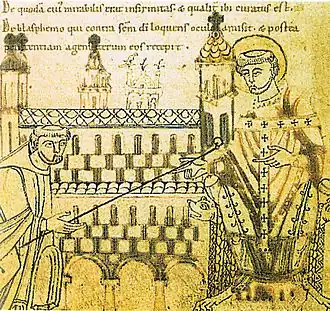 De quodā cui' mirabilis erat infirmitas & qualit ibi curatus est.
De blasphemo qui contra scm̄ diloquens oculū amisit. & postea
penitentiam agens iterum eos recepit.